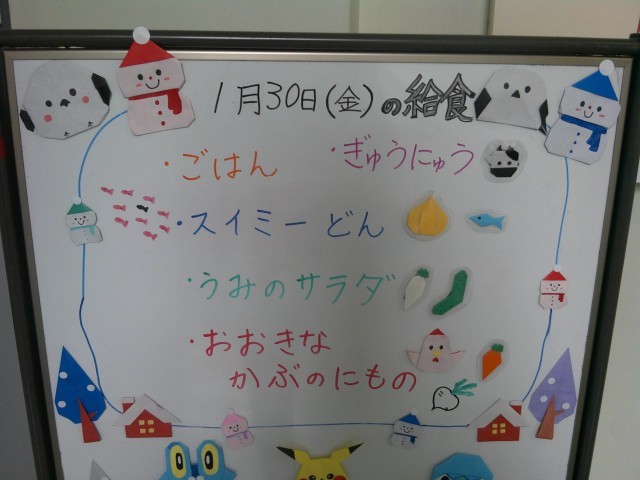 1月30日(金)の給食
・ごはん ・ぎゅうにゅう
・スイミーどん
・うみのサラダ
・おおきな
かぶのにもの